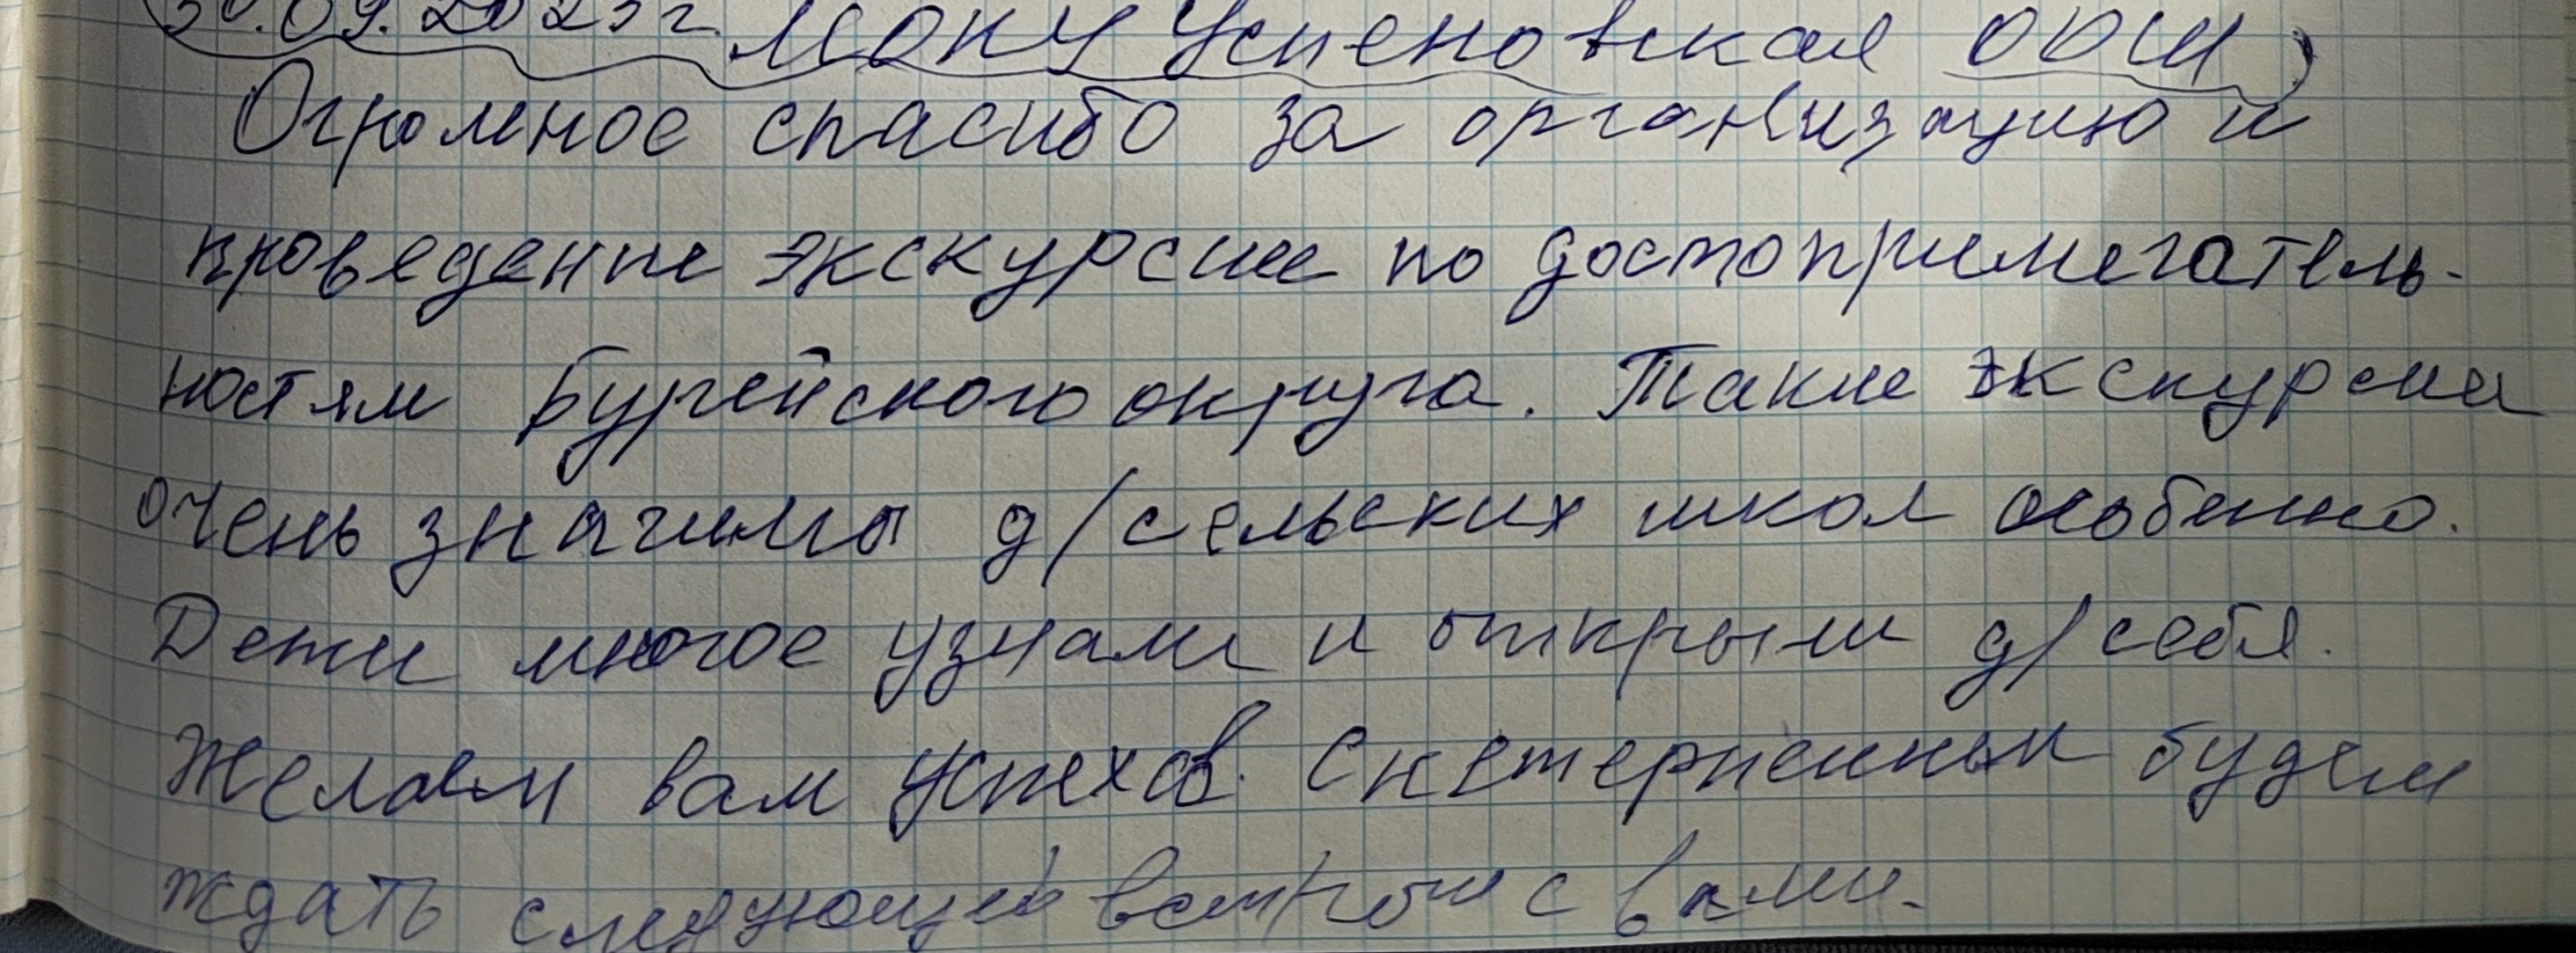 30.09.2025г. МОКУ Успеновская ООШ
Огромное спасибо за организацию и
проведение экскурсии по достопримечатель-
ностям Бурейского округа. Такие экскурсии
очень значимы д/сельских школ особенно.
Дети многое узнали и открыли д/себя.
Желаем вам успехов. С нетерпением будем
ждать следующей встречи с вами.